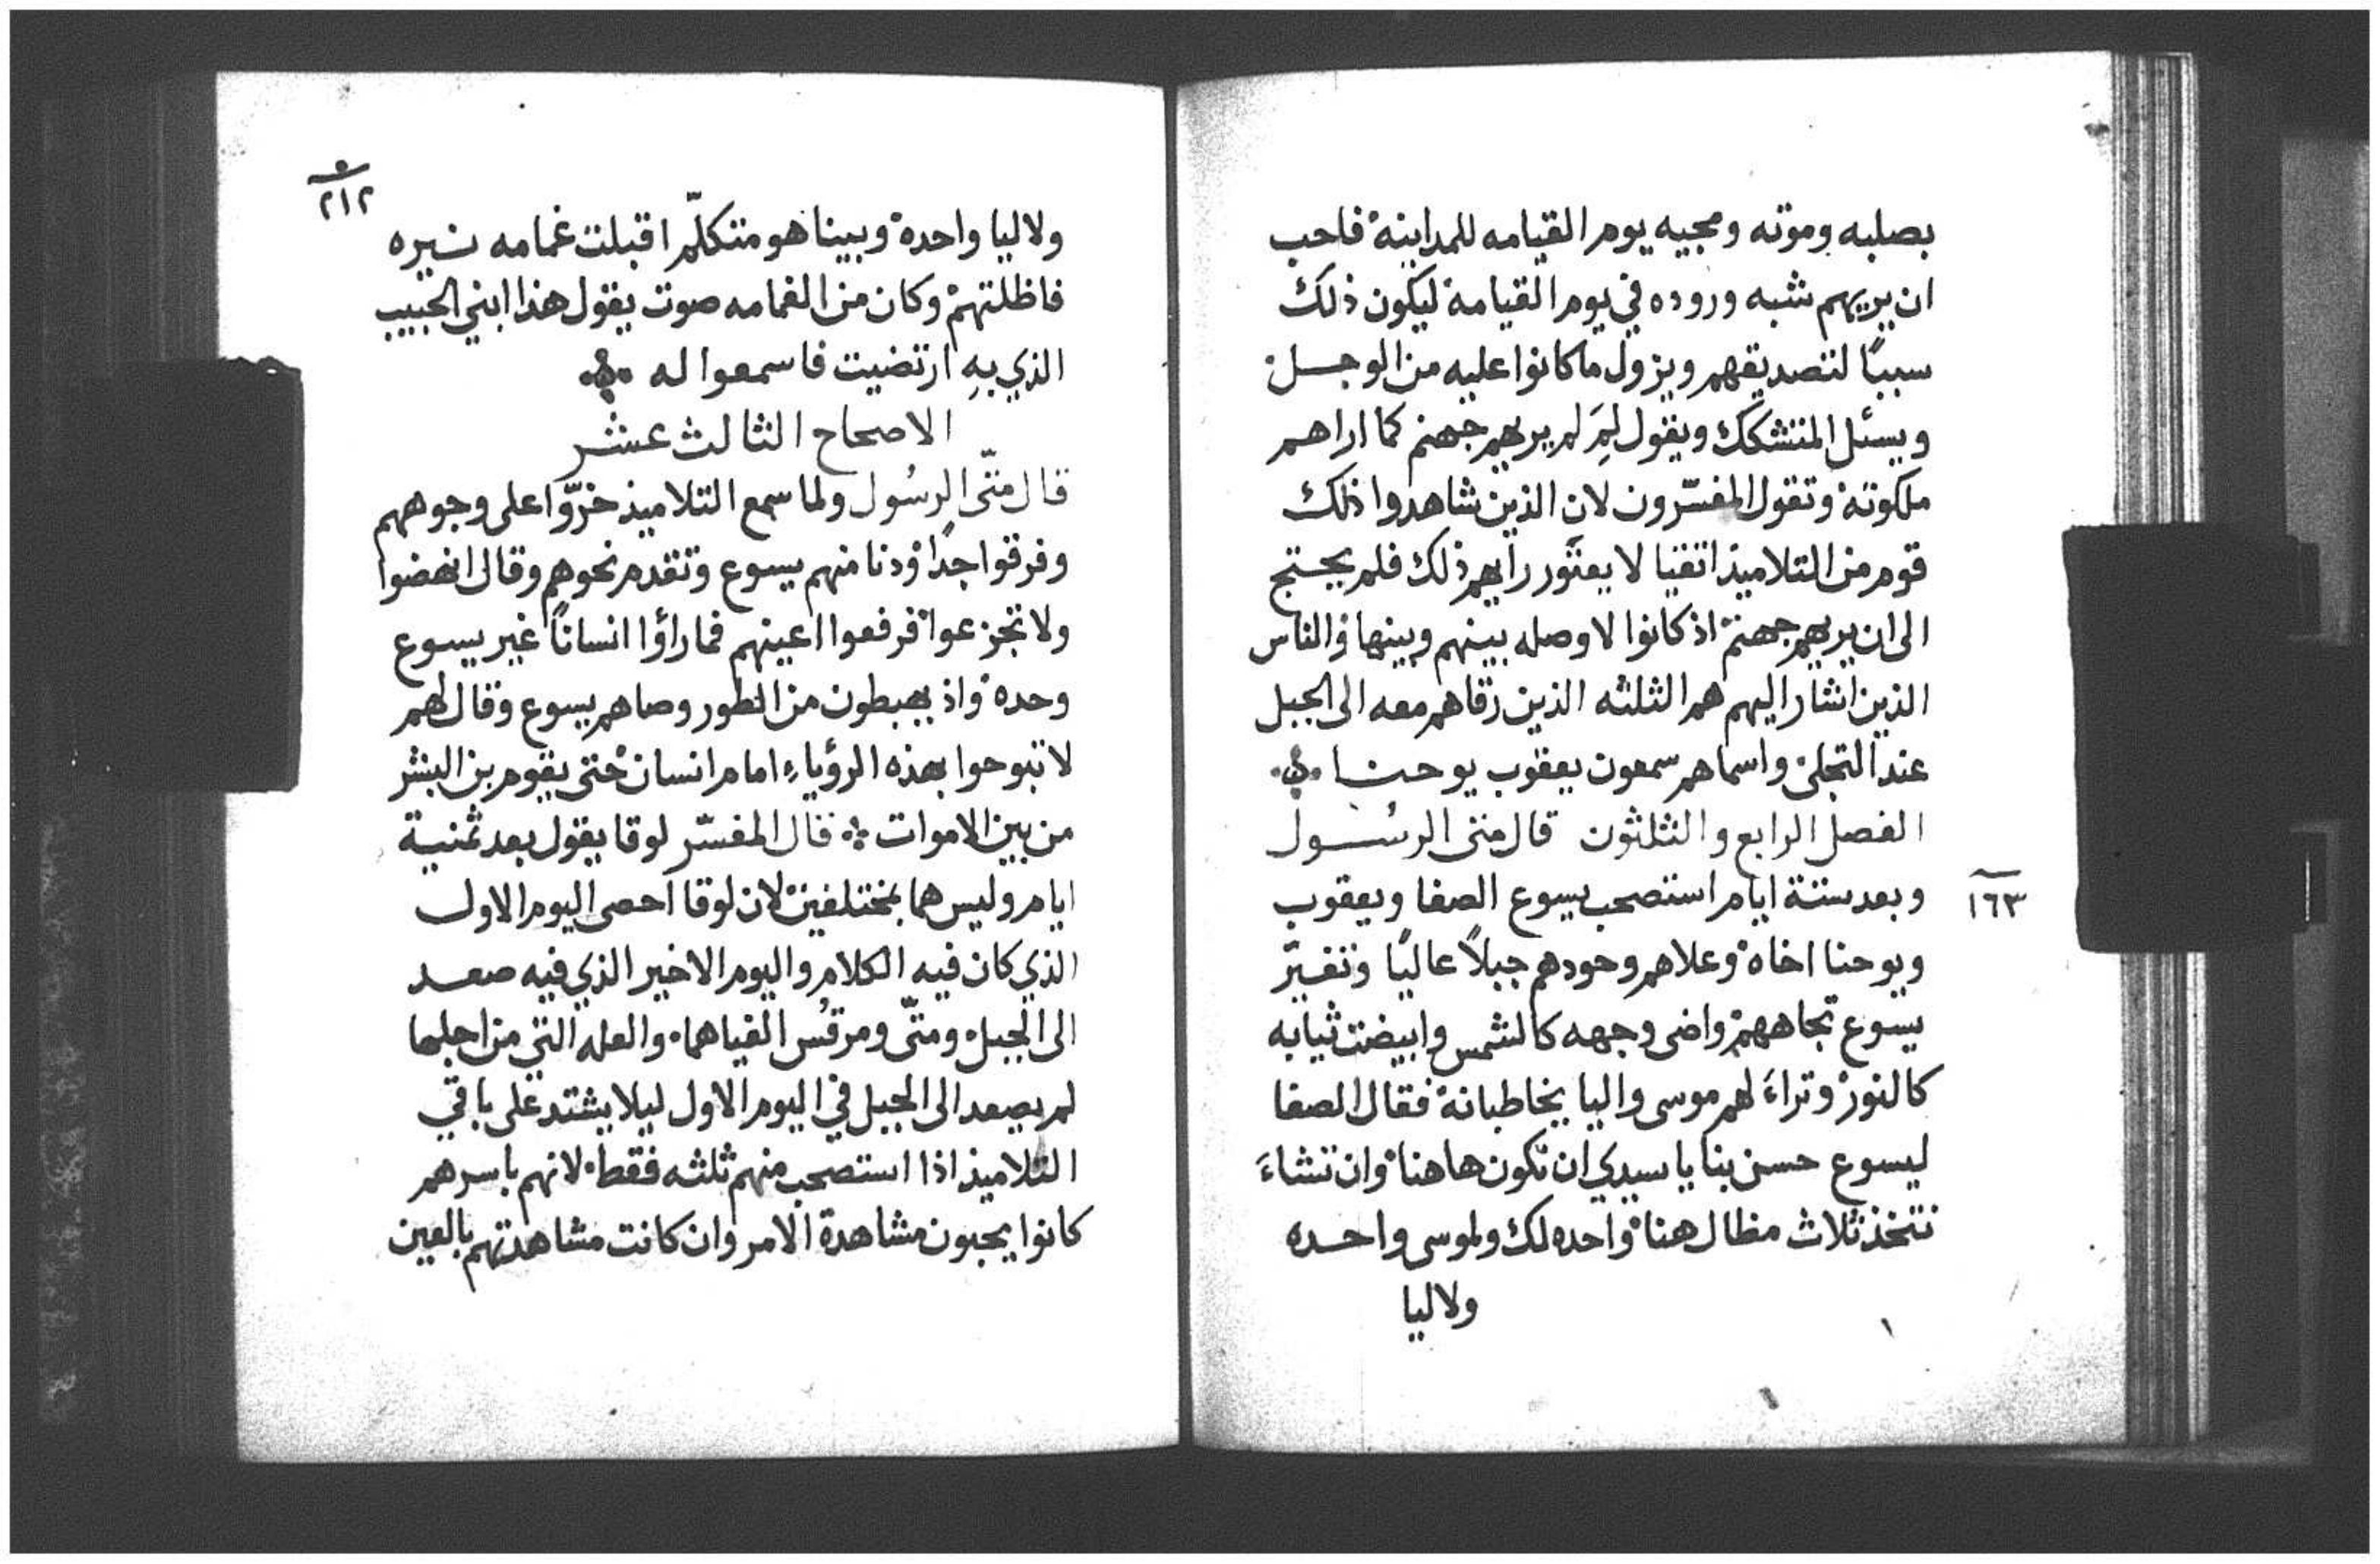 بصلبه وموته ومجيه يوم القيامه للمداينة فاحب
ان يريهم شبه وروده في يوم القيامة ليكون ذلك
سببًا لتصديقهم ويزول ما كانوا عليه من الوجل
ويسئل المتشكك ويقول لِمَ لم يريهم جهنم كما اراهم
ملكوته وتقول المفسّرون لان الذين شاهدوا ذلك
قوم من التلاميذ اتقيا لا يعتور رايهم ذلك فلم يحتج
الى ان يريهم جهنم اذ كانوا لا وصله بينهم وبينها والناس
الذين اشار اليهم هم الثلثه الذين رقاهم معه الى الجبل
عند التجلي واسماهم سمعون يعقوب يوحنا
الفصل الرابع والثلثون قال متى الرسُول
١٦٣
وبعد ستة ايام استصحب يسوع الصفا ويعقوب
ويوحنا اخاه وعلاهم وحودهم جبلاً عاليًا وتغيّر
يسوع تجاههم واضى وجهه كالشمس وابيضت ثيابه
كالنور وتراءَ لهم موسى واليا يخاطبانه فقال الصفا
ليسوع حسن بنا يا سيدي ان نكون هاهنا وان تشاءَ
نتخذ ثلاث مظال هنا واحده لك ولموسى واحده
ولاليا
٢١٢
ولاليا واحدة وبينا هو متكلّم اقبلت غمامه نيره
فاظلتهم وكان من الغمامه صوت يقول هذا ابني الحبيب
الذي بهِ ارتضيت فاسمعوا له
الاصحاح الثالث عشر
قال متّى الرسُول ولما سمع التلاميذ خرّوا على وجوههم
وفرقوا جدًا ودنا منهم يسوع وتقدم نحوهم وقال انهضوا
ولا تجزعوا فرفعوا اعينهم فما راؤا انسانًا غير يسوع
وحده واذ يهبطون من الطور وصاهم يسوع وقال لهم
لا تبوحوا بهذه الرؤياءِ امام انسان حتى يقوم بن البشر
من بين الاموات قال المفسّر لوقا يقول بعد ثمنية
ايام وليس هما بمختلفين لان لوقا احصى اليوم الاول
الذي كان فيه الكلام واليوم الاخير الذي فيه صعد
الى الجبل ومتّى ومرقُس القياهما والعله التي من اجلها
لم يصعد الى الجبل في اليوم الاول ليلا يشتد على باقي
التلاميذ اذا استصحب منهم ثلثه فقط لانهم باسرهم
كانوا يحبون مشاهدة الامر وان كانت مشاهدتهم بالعين